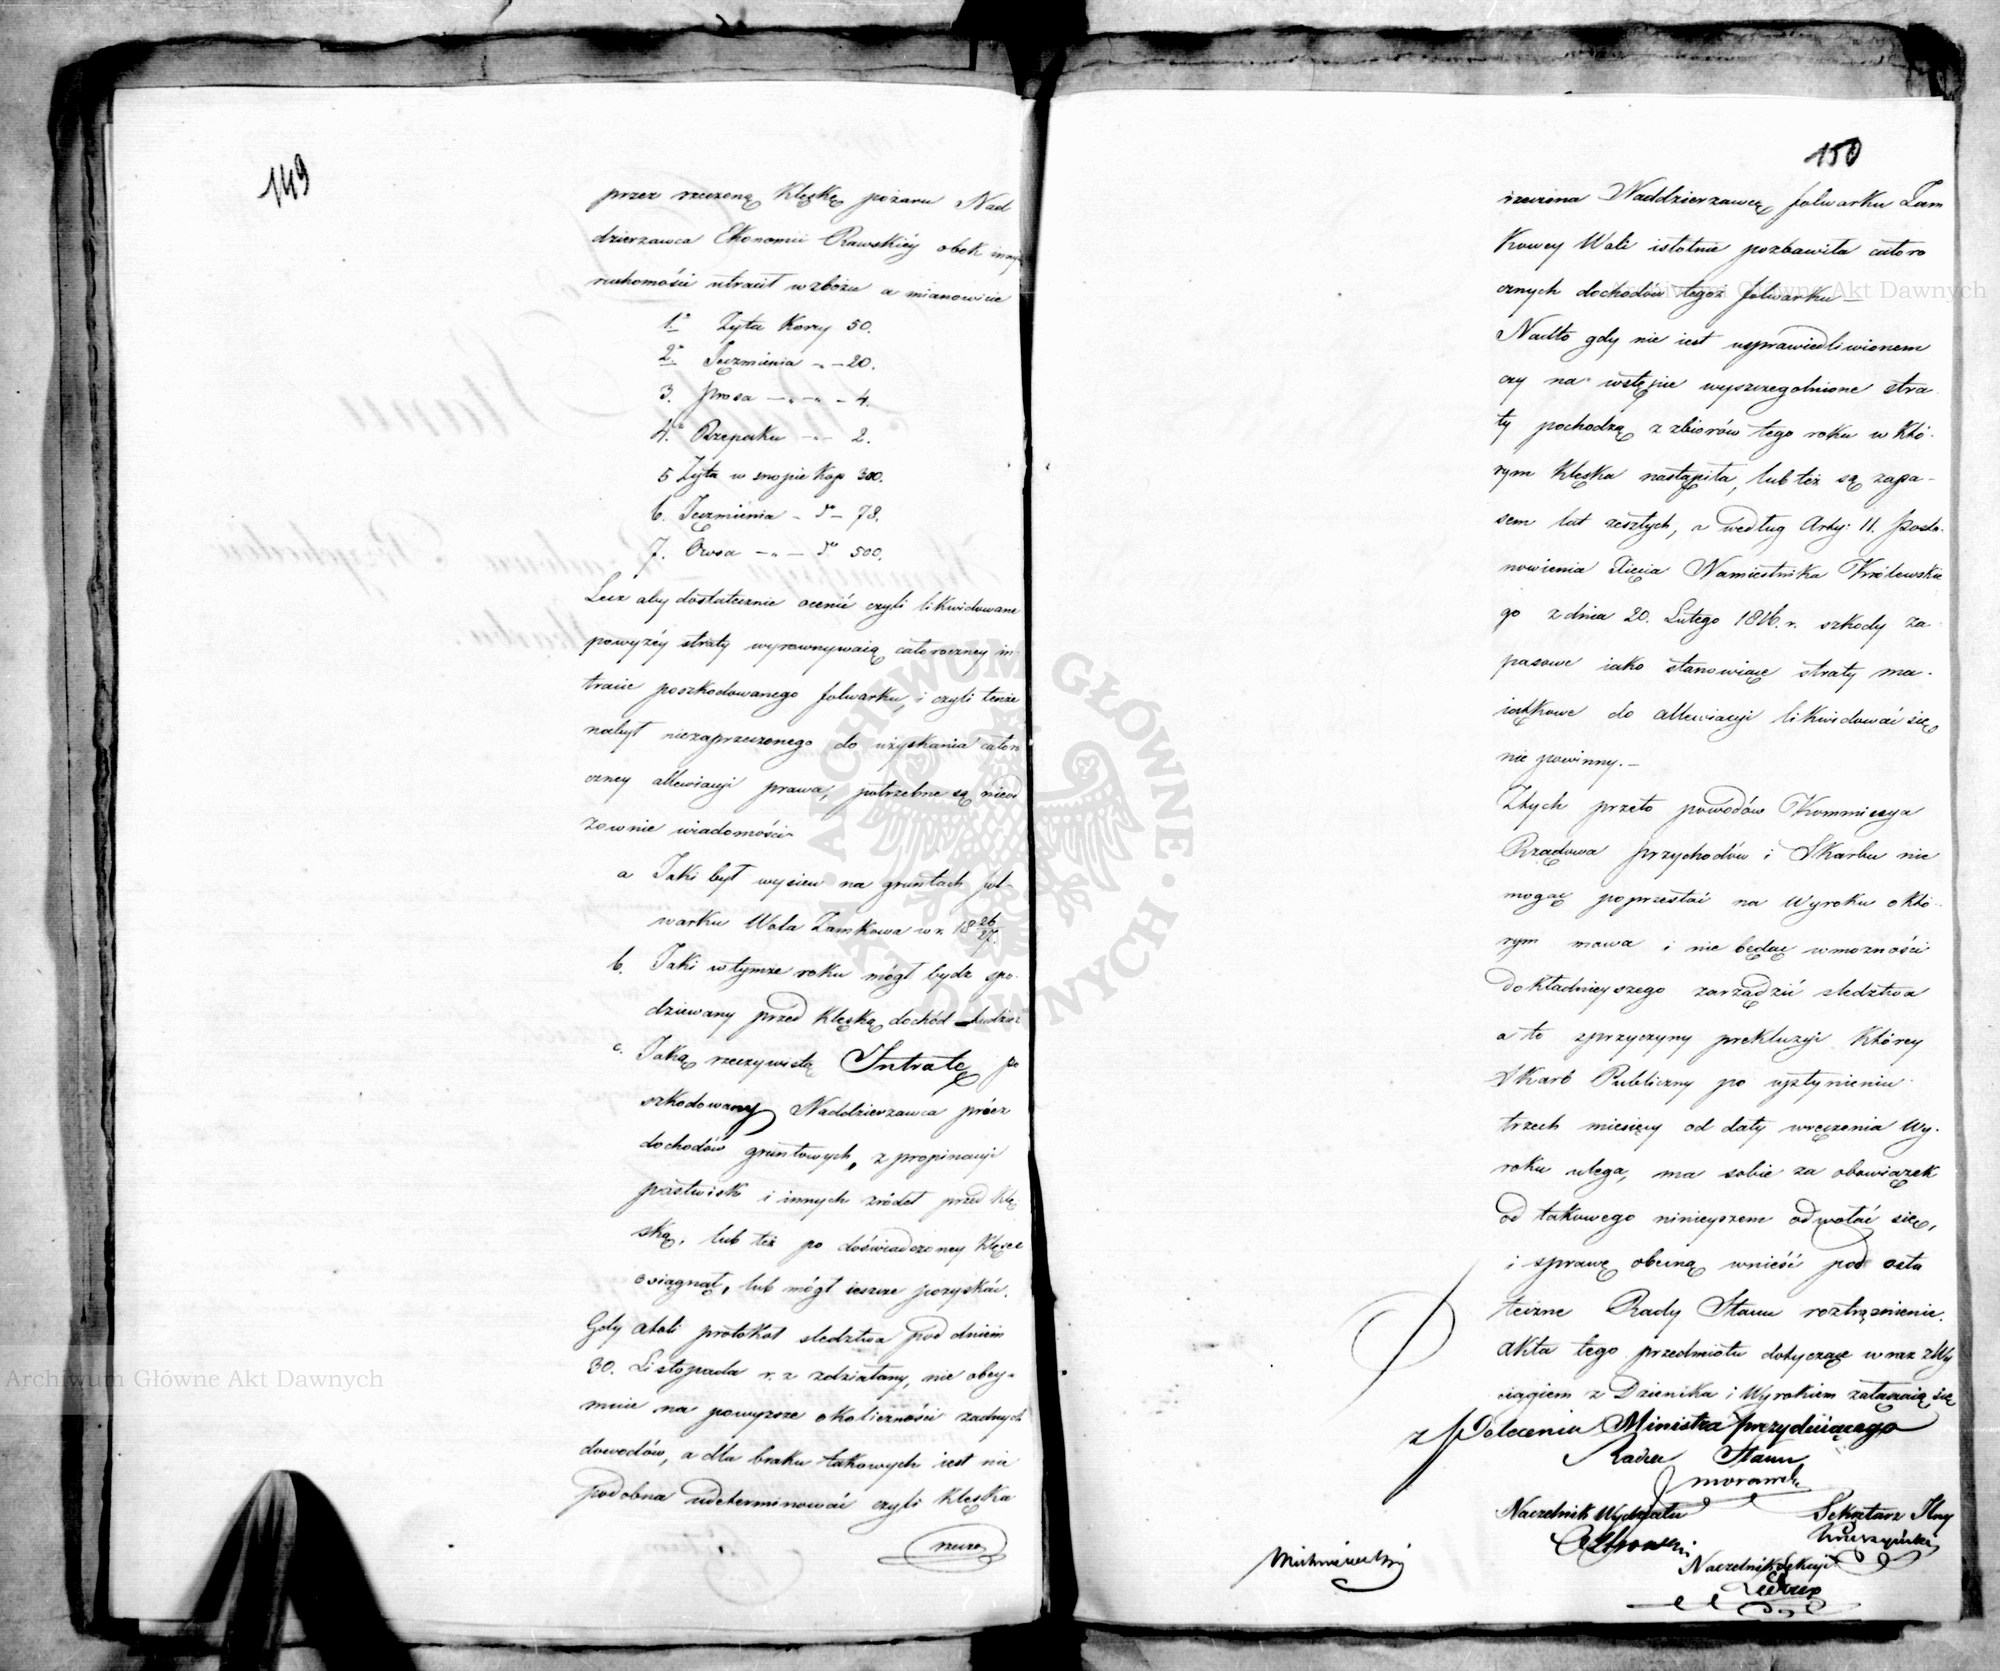 149
przez rzeczoną Klęskę pożaru Nad
dzierzawca Ekonomii Rawskiéy obok innych
ruchomości utracił w zbożu a mianowicie
1º Zyta Korcy 50.
2º Jęczmienia -„- 20.
3. Prosa -„-„- 4.
4º Rzepaku -„- 2.
5 Zyta w snopie Kop 300.
6. Jęczmienia - dº - 78.
7. Owsa -„- dº 500.
Lecz aby dostatecznie ocenić czyli likwidowane
powyżéy straty wyrownywaią całoroczney in-
tracie poszkodowanego folwarku, i czyli tenże
nabył niezaprzeczonego do uzyskania całoro
czney allewiacyi prawa, potrzebne są nieod
zownie wiadomości
a Jaki był wysiew na gruntach fol-
warku Wola Zamkowa w r. 18 26/27.
b. Jaki w tymże roku mógł bydz spo-
dziewany przed Klęską dochód tudzież
c. Jaką rzeczywistą Intratę po
szkodowany Naddzierzawca prócz
dochodów gruntowych, z propinacyi
pastwisk i innych zródeł przed Klę
ską, lub też po doświadczoney Klęsce
osiągnął, lub mógł ieszcze pozyskać.
Gdy atoli protokoł sledztwa pod dniem
30. Listopada r. z zdziałany, nie obey-
muie na powyższe okoliczności zadnych
dowodów, a dla braku takowych iest nie
podobna udeterminować czyli Klęska
rzeczo
150
rzeczona Naddzierzawcę folwarku Zam
Kowey Woli istotnie pozbawiła całoro
cznych dochodów tegoż folwarku —
Nadto gdy nie iest usprawiedliwionem
czy na wstępie wyszczegolnione stra
ty pochodzą z zbiorów tego roku w Któ-
rym Klęska nastąpiła, lub też są zapa-
sem lat zeszłych, a według Arty: 11. posta-
nowienia Xięcia Namiestnika Królewskie
go z dnia 20. Lutego 1816. r. szkody za-
pasowe iako stanowiące straty ma-
iątkowe do allewiacyi likwidować się
nie powinny. —
Z tych przeto powodów Kommissya
Rządowa przychodów i Skarbu nie
mogąc poprzestać na Wyroku o któ-
rym mowa i nie będąc w możności
dokładnieyszego zarządzić sledztwa
a to z przyczyny prekluzyi Którey
Skarb Publiczny po upłynieniu
trzech miesięcy od daty wręczenia Wy-
roku ulega, ma sobie za obowiązek
od takowego ninieyszem odwołać się,
i sprawę obecną wnieść pod osta
teczne Rady Stanu roztrząsnienie.
Akta tego przedmiotu dotyczące wraz z Wy
ciągiem z Dziennika i Wyrokiem załączaią się
z Polecenia Ministra prezyduiącego
Radca Stanu
Morawski
Naczelnik Wydziału
Sekretarz Jlny
Naczelnik Sekcyi
Archiwum Główne Akt Dawnych
Archiwum Główne Akt Dawnych
ARCHIWUM GŁÓWNE AKT DAWNYCH